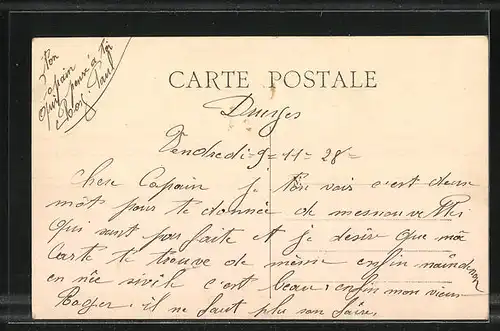 Ton
copain
qui pense à toi
Roger Paul
CARTE POSTALE
Duerges
Vendredi = 9 = 11 = 28 =
Cher Copain je t'en vais c'est deux
mot pour te donnée de mes nouvelles
qui sont parfaite et je désir que ma
carte te trouve de même enfin
en vie civile c'est beau. enfin mon vieux
Roger. il ne faut plus son faire.